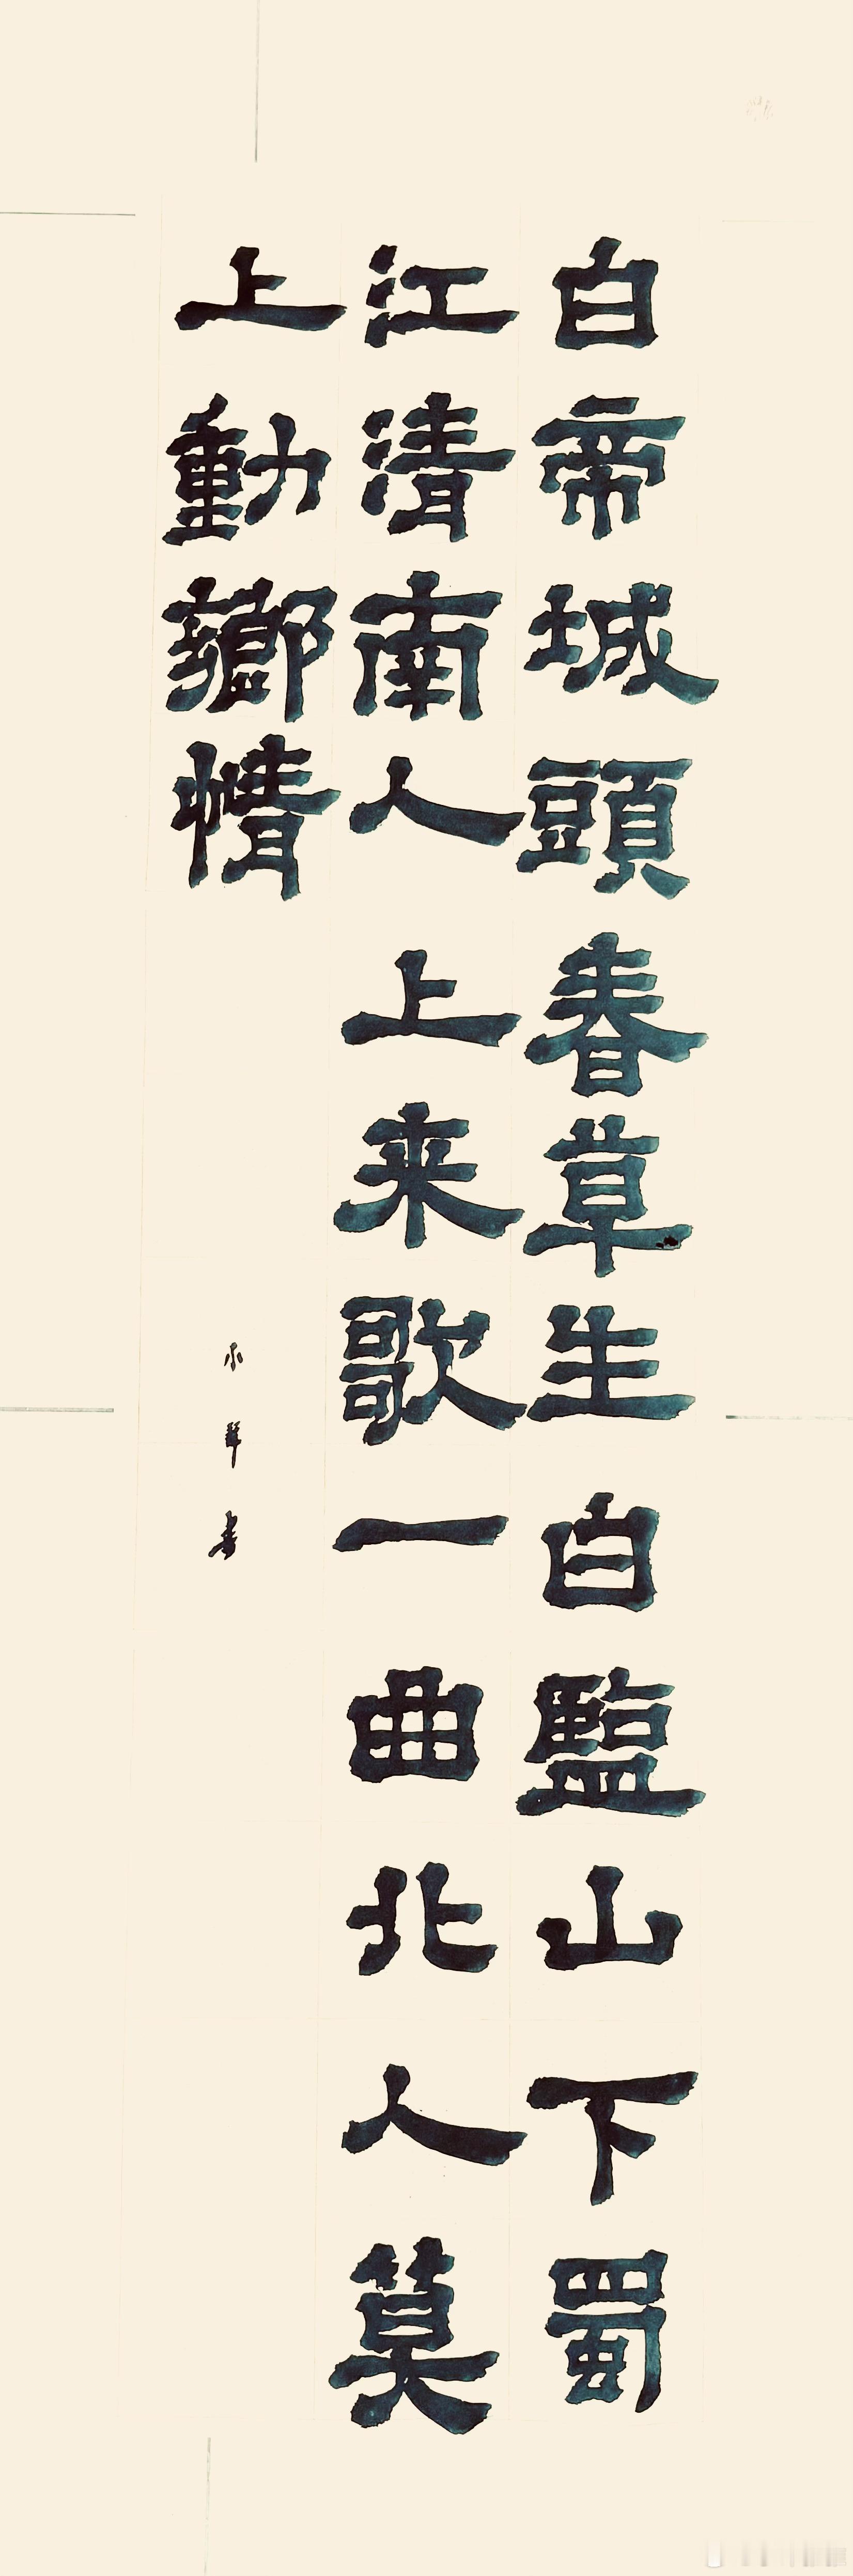 白帝城頭春草生白鹽山下蜀
江清南人上来歌一曲北人莫
上動鄉情